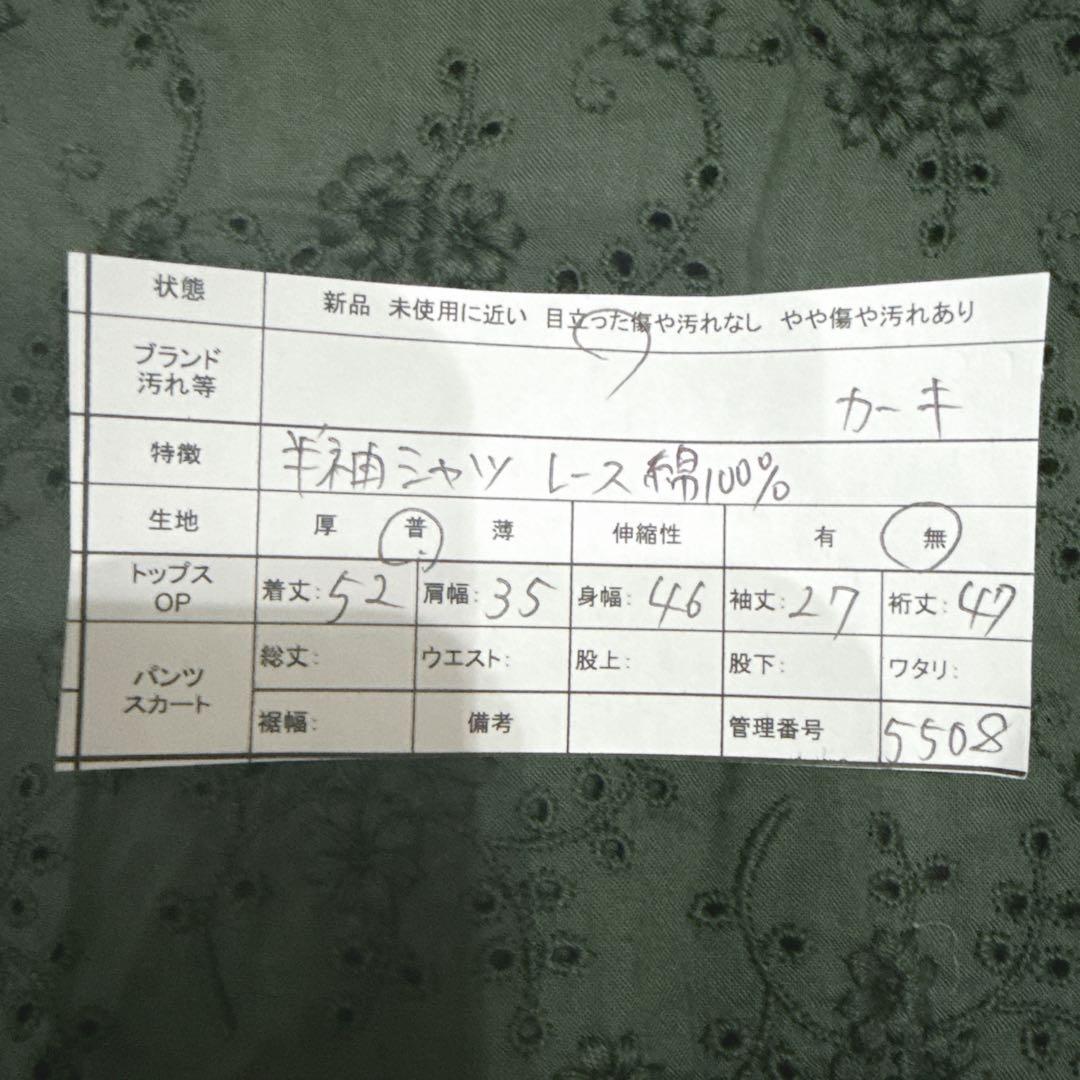 状態 新品 未使用に近い 目立った傷や汚れなし やや傷や汚れあり
ブランド
汚れ等 カーキ
特徴 半袖シャツ レース 綿100%
生地 厚 普 薄 伸縮性 有 無
トップス
OP 着丈:52 肩幅:35 身幅:46 袖丈:27 裄丈:47
パンツ
スカート 総丈: ウエスト: 股上: 股下: ワタリ:
裾幅: 備考 管理番号 5508